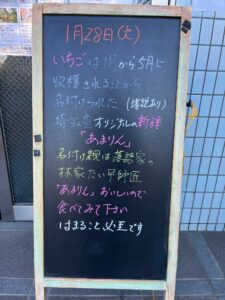 1月28日(火)
いちごは1月から5月に
収穫されることから
名付けられた(諸説あり)
埼玉県オリジナルの新種
「あまりん」
名付け親は落語家の
林家たい平師匠
「あまりん」おいしいので
食べてみて下さい
はまること必至です